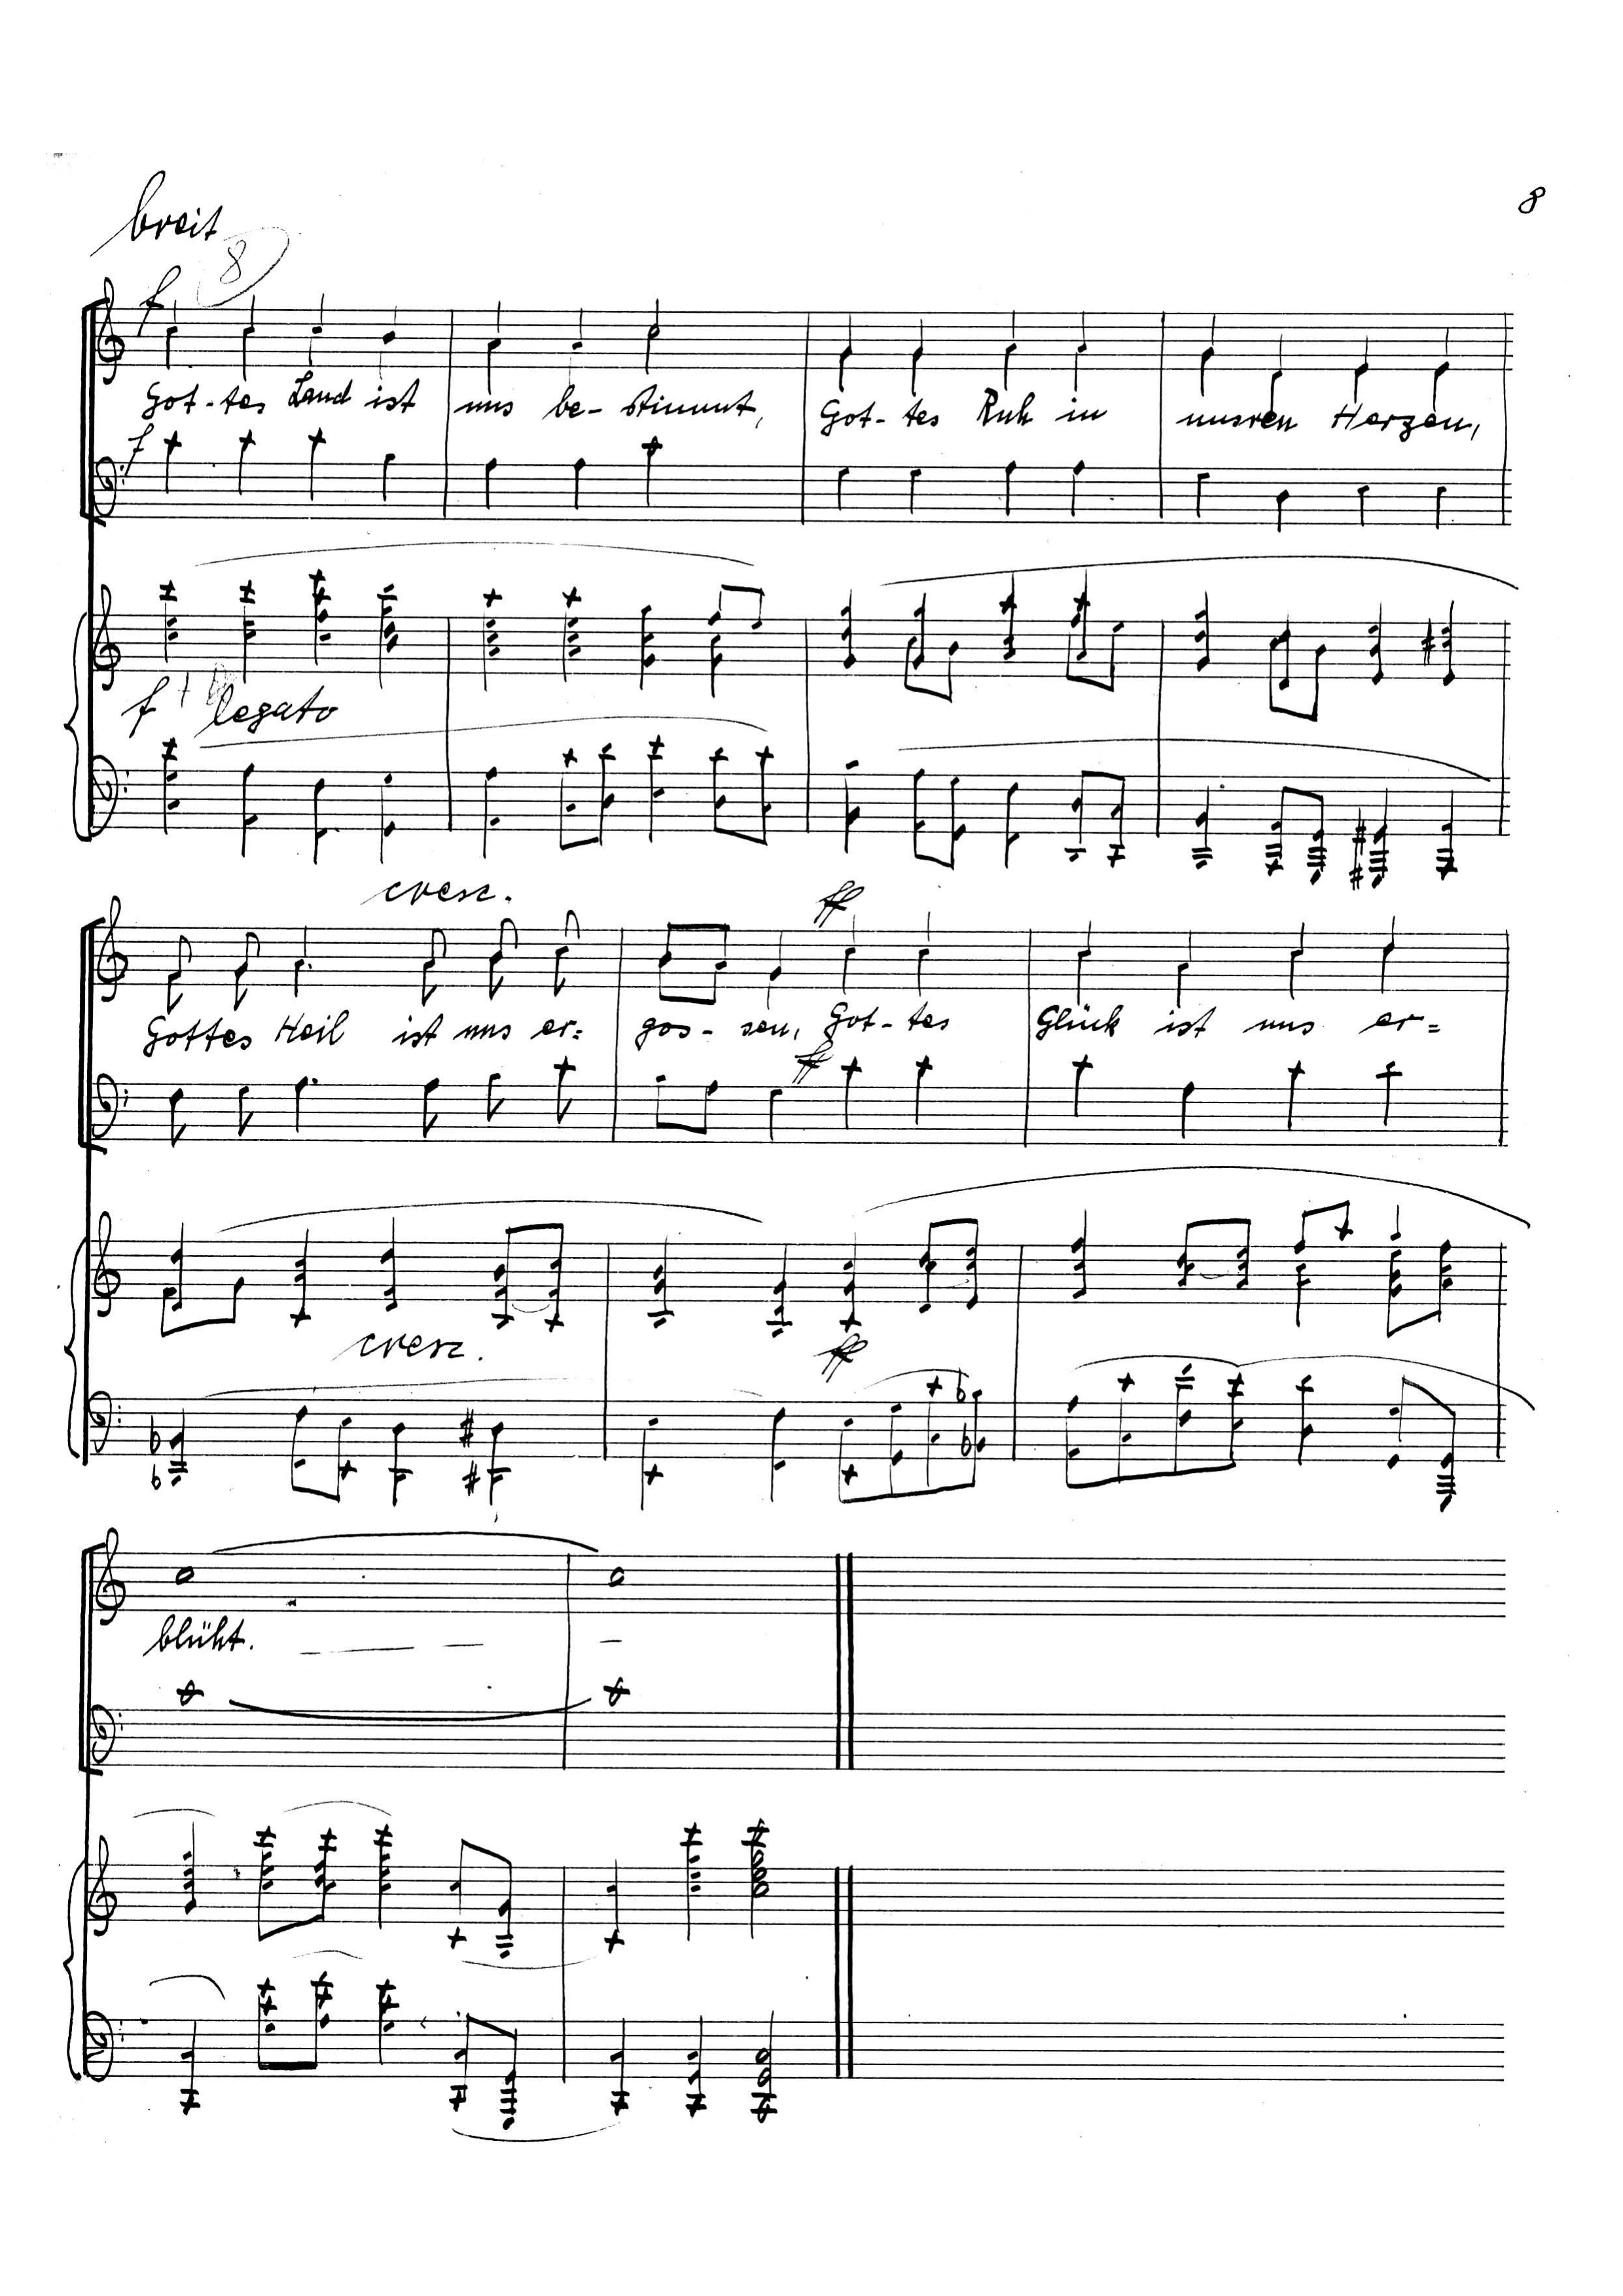 8
breit
8
f
Got-tes Land ist uns be-stimmt, Got-tes Ruh in unsren Herzen,
f
f legato
cresc.
ff
Gottes Heil ist uns er= gos-sen, Got-tes Glück ist uns er=
ff
cresc.
ff
blüht.